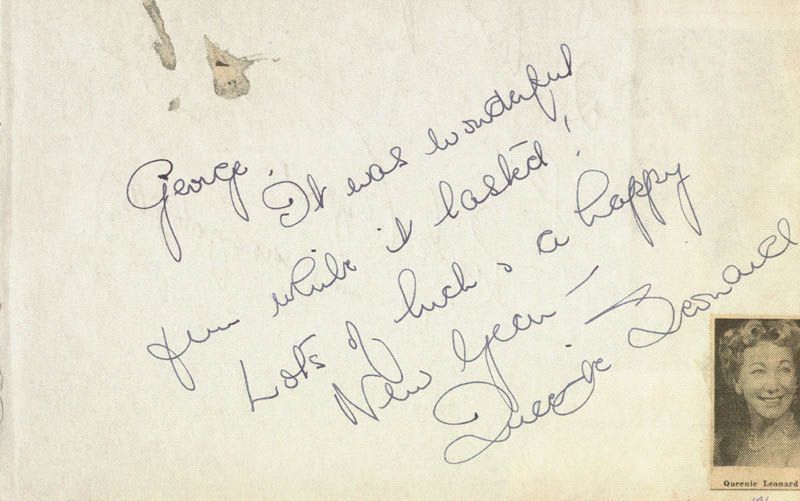 George,
It was wonderful
fun while it lasted!
Lots of luck & a happy
New Year —
Queenie Leonard
Queenie Leonard